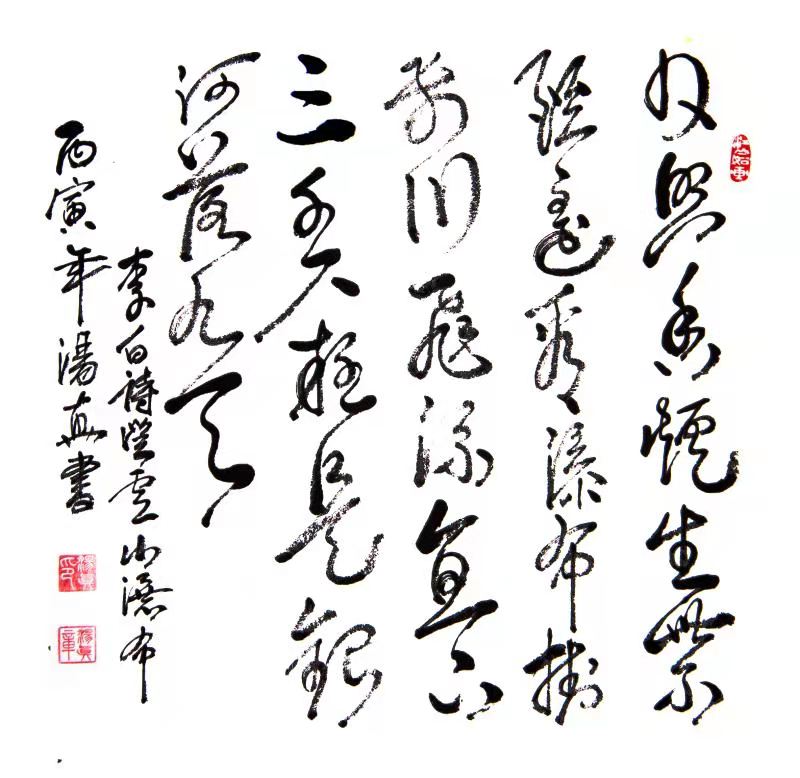 日照香爐生紫
煙遙看瀑布掛
前川飛流直下
三千尺疑是銀
河落九天
李白詩望廬山瀑布
丙寅年湯真書
湯真印
湯真章